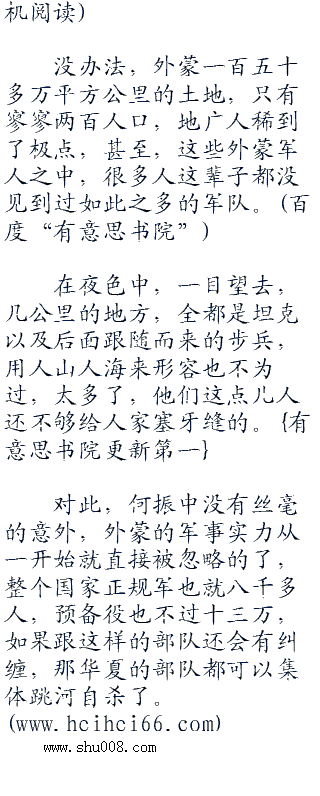 机阅读)
没办法，外蒙一百五十
多万平方公里的土地，只有
寥寥两百人口，地广人稀到
了极点，甚至，这些外蒙军
人之中，很多人这辈子都没
见到过如此之多的军队。(百
度“有意思书院”)
在夜色中，一目望去，
几公里的地方，全都是坦克
以及后面跟随而来的步兵，
用人山人海来形容也不为
过，太多了，他们这点儿人
还不够给人家塞牙缝的。{有
意思书院更新第一}
对此，何振中没有丝毫
的意外，外蒙的军事实力从
一开始就直接被忽略的了，
整个国家正规军也就八千多
人，预备役也不过十三万，
如果跟这样的部队还会有纠
缠，那华夏的部队都可以集
体跳河自杀了。
(www.hcihci66.com)
www.shu008.com